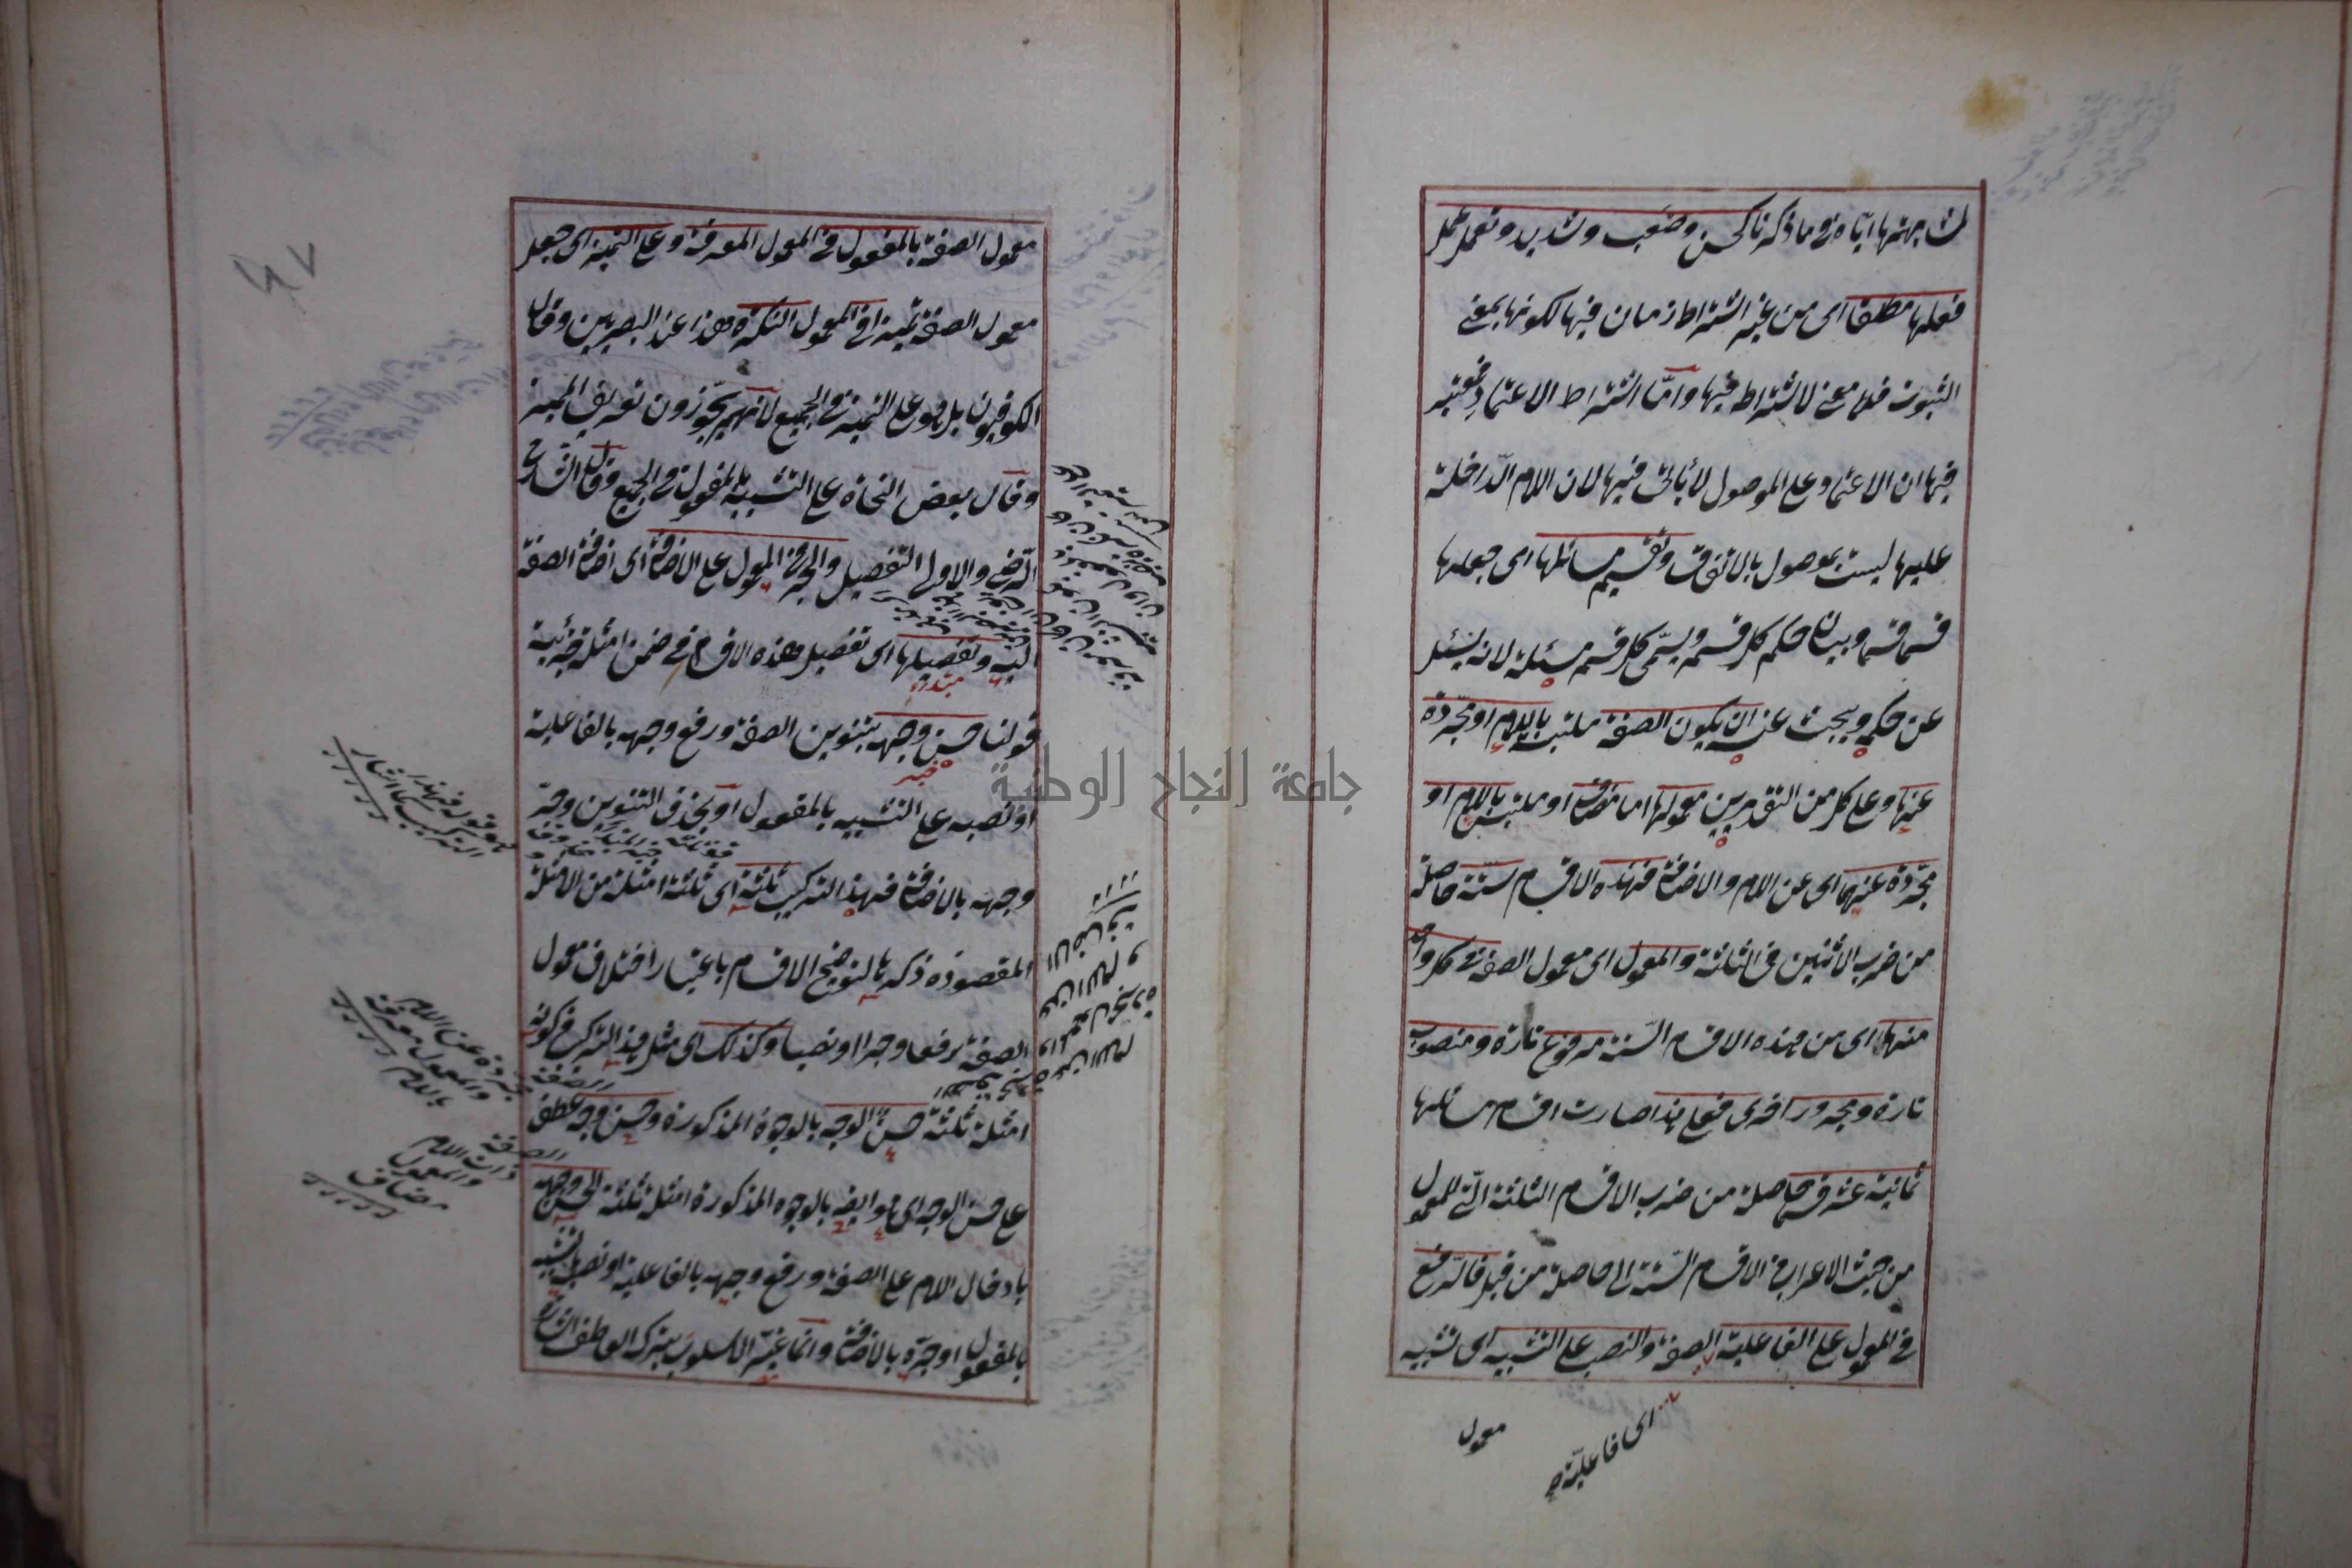 لمشابهتها اياه وما ذكر ناكحسن وصعب وشديد وتعمل عمل
فعلها مطلقا اى من غير اشتراط زمان فيها لكونها بمعنى
الثبوت فلا معنى لاشتراطه فيها وامّا اشتراط الاعتماد فمعتبر
فيها ان الاعتماد على الموصول لا يأتى فيها لان اللام الداخلة
عليها ليست بموصول بالاتفاق وتقسيم مسائلها اى جعلها
قسما قسما وبيان حكم كل قسم ويسمّى كل قسم مسئلة لانه يسئل
عن حكمه ويبحث عنه ان يكون الصفة ملتبسة باللام او مجرّدة
عنها وعلى كل من التقديرين معمولها اما مضاف او ملتبس باللام او
مجرّدة عنهما اى عن اللام والاضافة فهذه الاقسام ستّة حاصلة
من ضرب الاثنين فى الثلثة والمعمول اى معمول الصفة فى كل واحد
منها اى من هذه الاقسام الستة مرفوع تارة ومنصوب
تارة ومجرور اخرى فعلى هذا صارت اقسام مسائلها
ثمانية عشر قسما حاصلة من ضرب الاقسام الثلثة الّتى للمعمول
من حيث الاعراب فى الاقسام الستة الحاصلة من قبل فالرفع
فى المعمول على الفاعلية للصفة والنصب على التشبيه اى تشبيه
معمول
اى فاعليّته
معمول الصفة بالمفعول فى المعمول المعرفة وعلى التميز اى جعل
معمول الصفة تميزا فى المعمول النكرة هذا عند البصريين وقال
الكوفيون بل هو على التميز فى الجميع لانهم يجوّزون تعريف المميز
وقال بعض النحاة على التشبيه بالمفعول فى الجميع وقال الشارح
الرضى والاولى التفصيل والجر فى المعمول على الاضافة اى اضافة الصفة
اليه وتفصيلها اى تفصيل هذه الاقسام فى ضمن امثلة جزئية
مبتداء
قولنا حسن وجهه بتنوين الصفة ورفع وجهه بالفاعلية
خبر
او نصبه على التشبيه بالمفعول او بحذف التنوين وجرّ
وجهه بالاضافة فهذا التركيب ثلثة اى ثلثة امثلة من الامثلة
المقصودة ذكرها لتوضيح الاقسام باعتبار اختلاف معمول
الصفة رفعا وجرا ونصبا وكذلك اى مثل هذا التركيب فى كونه
امثلة ثلثة حسن الوجه بالوجوه المذكورة وحسن وجه عطف
على حسن الوجه اى هو ايضا بالوجوه المذكورة امثلة ثلثة الحسن وجهه
بادخال اللام على الصفة ورفع وجهه بالفاعلية او نصبه بالتشبيه
بالمفعول او جرّه بالاضافة وانما غيّر الاسلوب بترك العاطف اشارة
الصفة مجردة عن اللام
والمعمول معرفة
باللام
الصفة
ذات اللام
والمعمول
مضاف
جامعة النجاح الوطنية